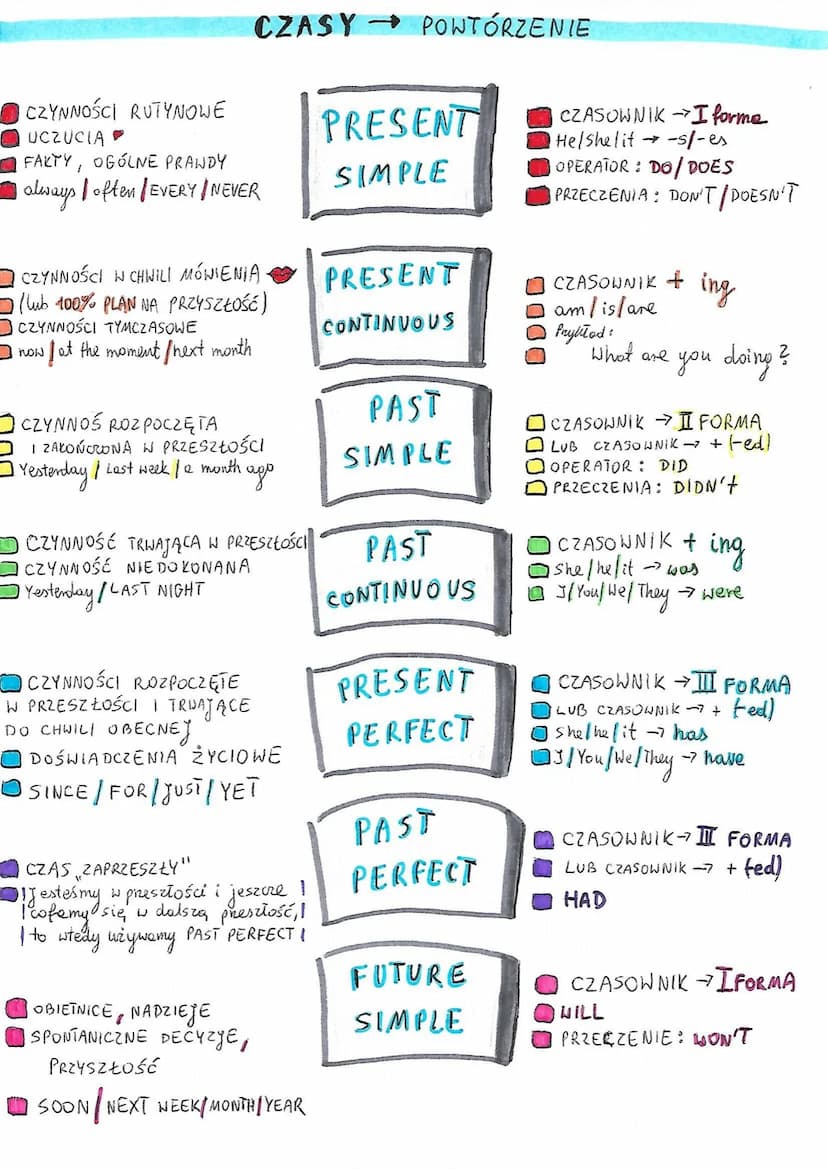 CZASY → POWTÓRZENIE
CZYNNOŚCI RUTYNOWE
UCZUCIA
FAKTY, OGÓLNE PRAWDY
always/often/EVERY/NEVER
PRESENT
SIMPLE
CZASOWNIK → I forma
He/she/it → -s/-es
OPERATOR: DO/DOES
PRZECZENIA: DON'T/DOESN'T
CZYNNOŚCI W CHWILI MÓWIENIA
(lub 100% PLAN NA PRZYSZŁOŚĆ)
CZYNNOŚCI TYMCZASOWE
now/at the moment/next month
PRESENT
CONTINUOUS
CZASOWNIK + ing
am/is/are
Przykład:
What are you doing?
CZYNNOŚ ROZPOCZĘTA
I ZAKOŃCZONA W PRZESZŁOŚCI
Yesterday/Last week/a month ago
PAST
SIMPLE
CZASOWNIK → II FORMA
LUB CZASOWNIK → + (-ed)
OPERATOR: DID
PRZECZENIA: DIDN't
CZYNNOŚĆ TRWAJĄCA W PRZESZŁOŚCI
CZYNNOŚĆ NIEDOKONANA
Yesterday/LAST NIGHT
PAST
CONTINUOUS
CZASOWNIK + ing
She/he/it → was
I/You/We/They → were
CZYNNOŚCI ROZPOCZĘTE
W PRZESZŁOŚCI I TRWAJĄCE
DO CHWILI OBECNEJ
DOŚWIADCZENIA ŻYCIOWE
SINCE/FOR/JUST/YET
PRESENT
PERFECT
CZASOWNIK → III FORMA
LUB CZASOWNIK → + (-ed)
She/he/it → has
I/You/We/They → have
CZAS „ZAPRZESZŁY"
Jesteśmy w przeszłości i jeszcze
cofamy się w dalszą przeszłość,
to wtedy używamy PAST PERFECT
PAST
PERFECT
CZASOWNIK → III FORMA
LUB CZASOWNIK → + (-ed)
HAD
OBIETNICE, NADZIEJE
SPONTANICZNE DECYZJE,
PRZYSZŁOŚĆ
SOON/NEXT WEEK/MONTH/YEAR
FUTURE
SIMPLE
CZASOWNIK → I FORMA
WILL
PRZECZENIE: WON'T